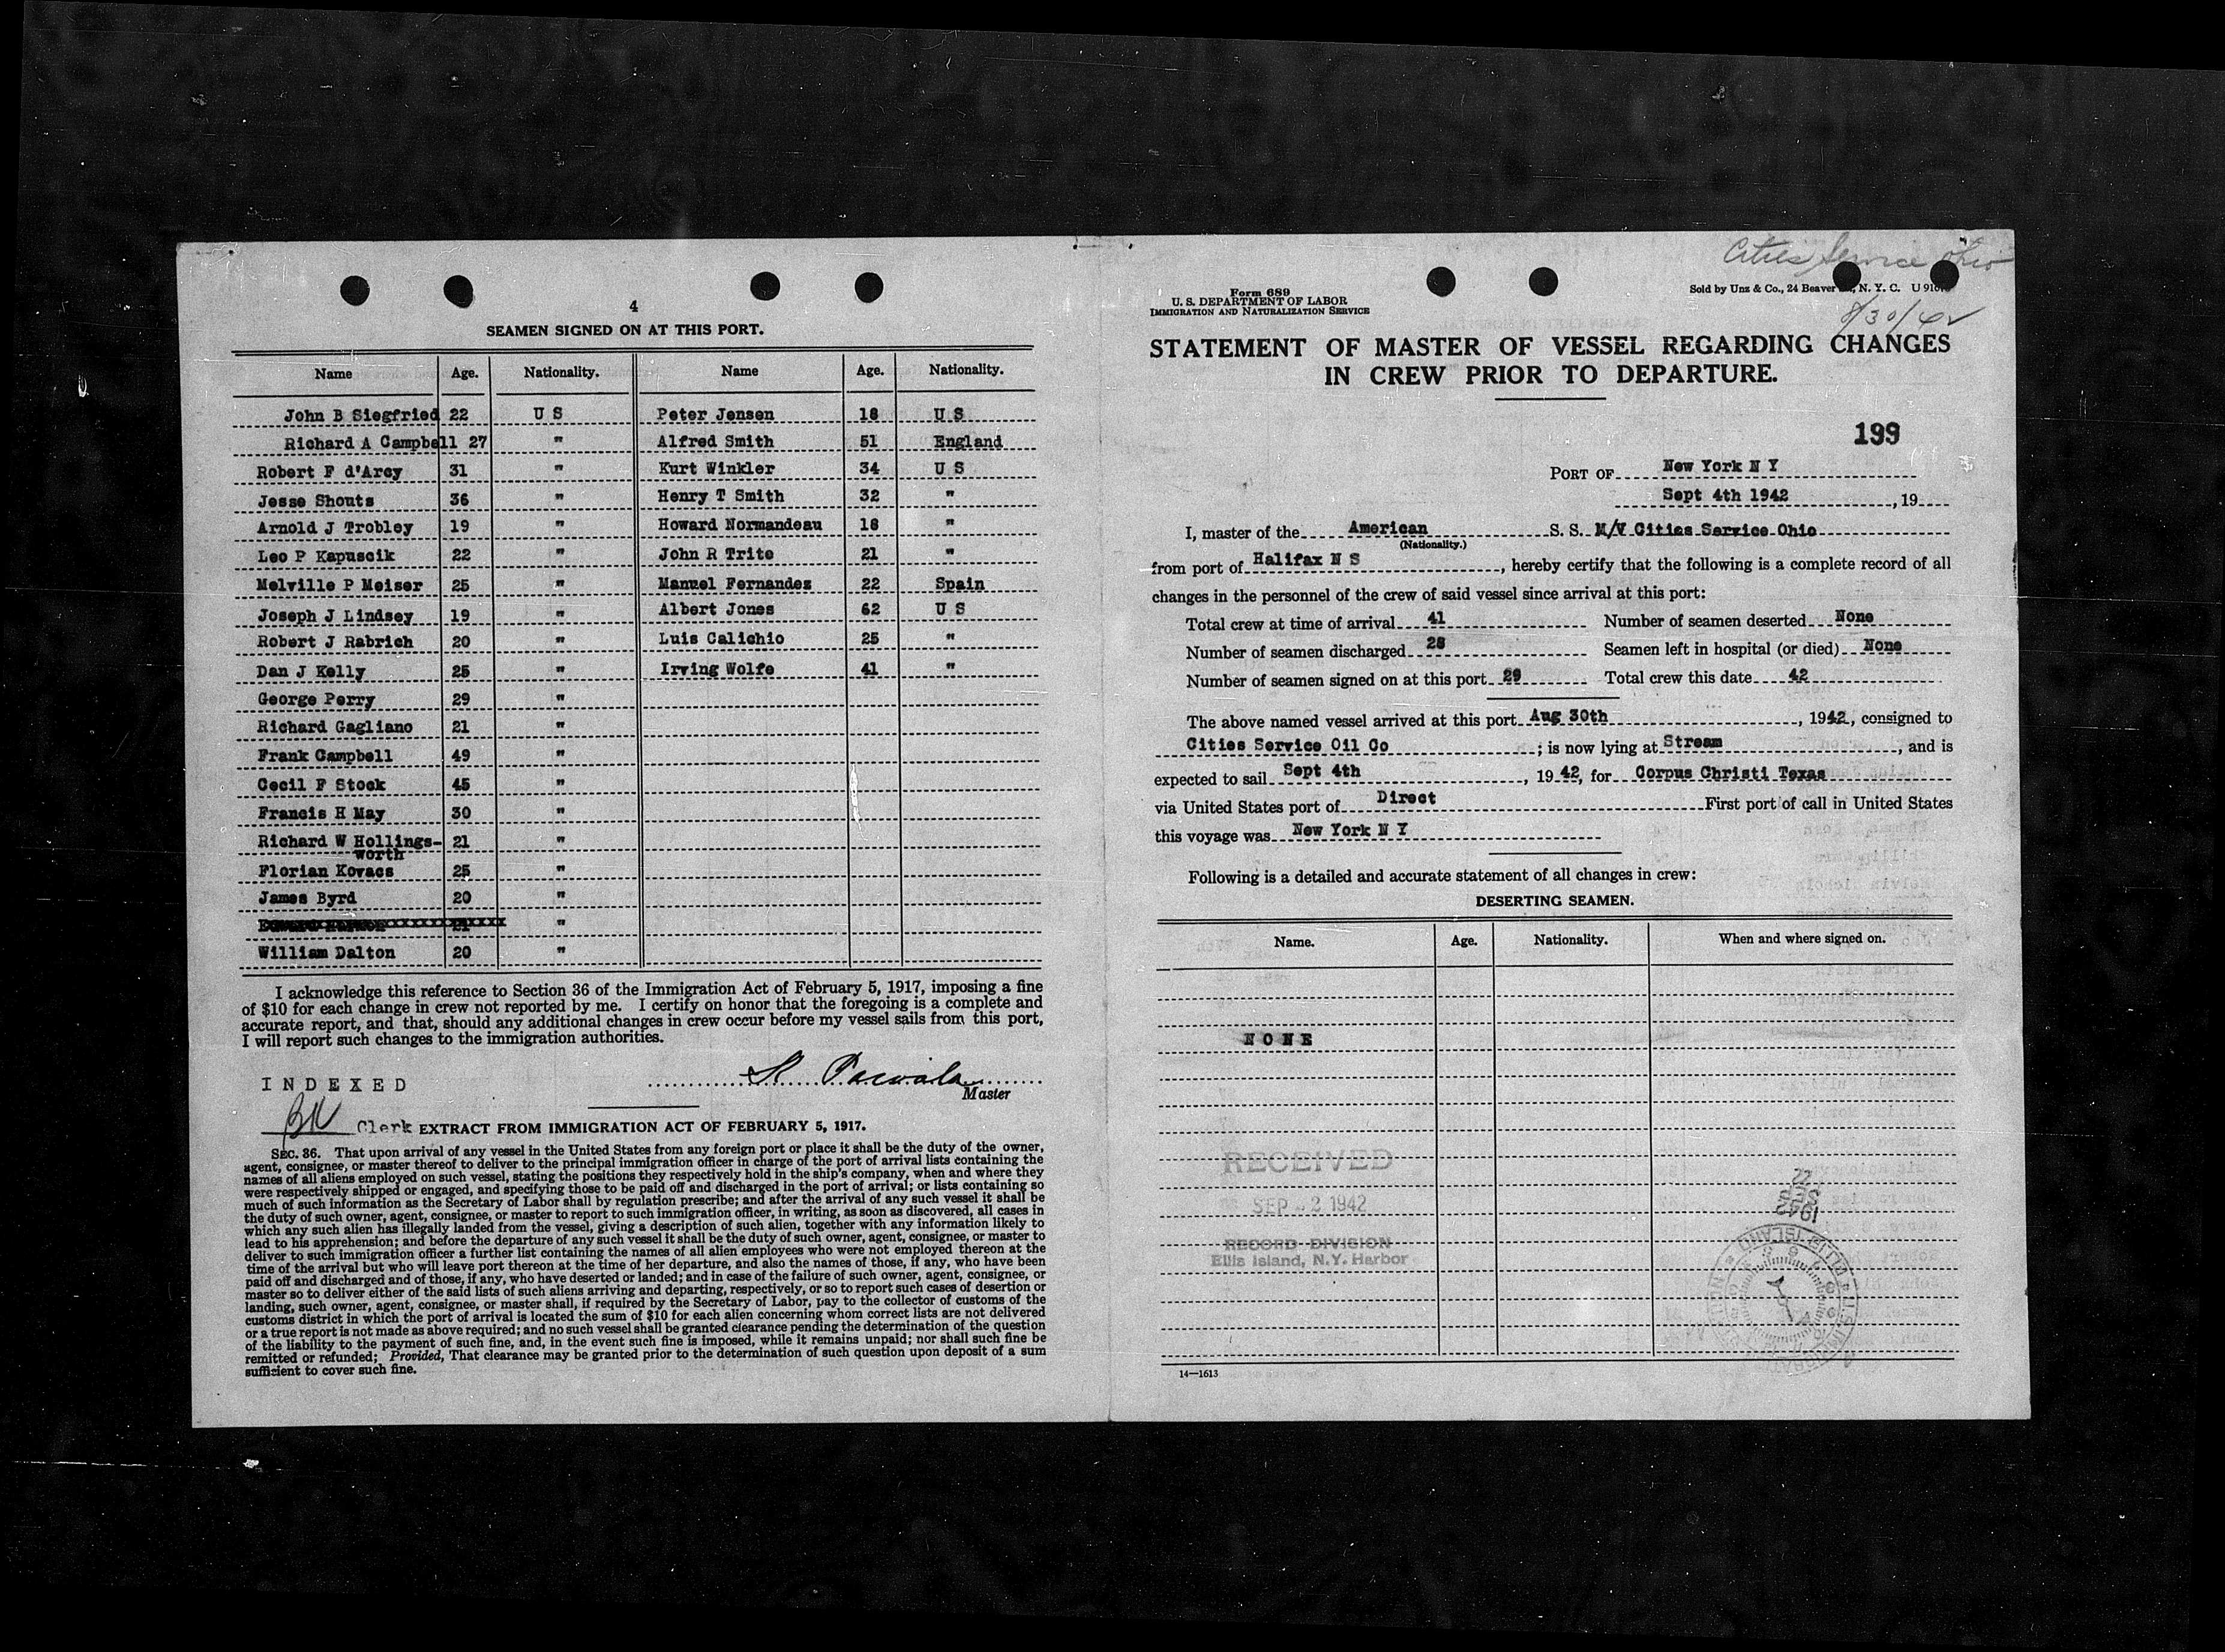 4
SEAMEN SIGNED ON AT THIS PORT.
Name Age. Nationality. Name Age. Nationality.
John B Siegfried 22 U S Peter Jensen 18 U S
Richard A Campbell 27 " Alfred Smith 51 England
Robert F d'Arcy 31 " Kurt Winkler 34 U S
Jesse Shouts 36 " Henry T Smith 32 "
Arnold J Trobley 19 " Howard Normandeau 18 "
Leo P Kapuscik 22 " John R Trite 21 "
Melville P Meiser 25 " Manuel Fernandez 22 Spain
Joseph J Lindsey 19 " Albert Jones 62 U S
Robert J Rabrich 20 " Luis Calichio 25 "
Dan J Kelly 25 " Irving Wolfe 41 "
George Perry 29 "
Richard Gagliano 21 "
Frank Campbell 49 "
Cecil F Stock 45 "
Francis H May 30 "
Richard W Hollings- 21 "
worth
Florian Kovacs 25 "
James Byrd 20 "
"
William Dalton 20 "
I acknowledge this reference to Section 36 of the Immigration Act of February 5, 1917, imposing a fine
of $10 for each change in crew not reported by me. I certify on honor that the foregoing is a complete and
accurate report, and that, should any additional changes in crew occur before my vessel sails from this port,
I will report such changes to the immigration authorities.
INDEXED
Master
BK Clerk EXTRACT FROM IMMIGRATION ACT OF FEBRUARY 5, 1917.
SEC. 36. That upon arrival of any vessel in the United States from any foreign port or place it shall be the duty of the owner,
agent, consignee, or master thereof to deliver to the principal immigration officer in charge of the port of arrival lists containing the
names of all aliens employed on such vessel, stating the positions they respectively hold in the ship's company, when and where they
were respectively shipped or engaged, and specifying those to be paid off and discharged in the port of arrival; or lists containing so
much of such information as the Secretary of Labor shall by regulation prescribe; and after the arrival of any such vessel it shall be
the duty of such owner, agent, consignee, or master to report to such immigration officer, in writing, as soon as discovered, all cases in
which any such alien has illegally landed from the vessel, giving a description of such alien, together with any information likely to
lead to his apprehension; and before the departure of any such vessel it shall be the duty of such owner, agent, consignee, or master to
deliver to such immigration officer a further list containing the names of all alien employees who were not employed thereon at the
time of the arrival but who will leave port thereon at the time of her departure, and also the names of those, if any, who have been
paid off and discharged and of those, if any, who have deserted or landed; and in case of the failure of such owner, agent, consignee, or
master so to deliver either of the said lists of such aliens arriving and departing, respectively, or so to report such cases of desertion or
landing, such owner, agent, consignee, or master shall, if required by the Secretary of Labor, pay to the collector of customs of the
customs district in which the port of arrival is located the sum of $10 for each alien concerning whom correct lists are not delivered
or a true report is not made as above required; and no such vessel shall be granted clearance pending the determination of the question
of the liability to the payment of such fine, and, in the event such fine is imposed, while it remains unpaid; nor shall such fine be
remitted or refunded; Provided, That clearance may be granted prior to the determination of such question upon deposit of a sum
sufficient to cover such fine.
Cities Service Ohio
Form 689
U. S. DEPARTMENT OF LABOR
IMMIGRATION AND NATURALIZATION SERVICE
Sold by Unz & Co., 24 Beaver N. Y. C.
8/30/42
STATEMENT OF MASTER OF VESSEL REGARDING CHANGES
IN CREW PRIOR TO DEPARTURE.
199
PORT OF New York N Y
Sept 4th 1942, 19
I, master of the American S. S. M/V Cities Service Ohio
(Nationality.)
from port of Halifax N S, hereby certify that the following is a complete record of all
changes in the personnel of the crew of said vessel since arrival at this port:
Total crew at time of arrival 41 Number of seamen deserted None
Number of seamen discharged 28 Seamen left in hospital (or died) None
Number of seamen signed on at this port 29 Total crew this date 42
The above named vessel arrived at this port Aug 30th, 1942, consigned to
Cities Service Oil Co; is now lying at Stream, and is
expected to sail Sept 4th, 1942, for Corpus Christi Texas
via United States port of Direct First port of call in United States
this voyage was New York N Y
Following is a detailed and accurate statement of all changes in crew:
DESERTING SEAMEN.
Name. Age. Nationality. When and where signed on.
NONE
RECEIVED
SEP 2 1942
RECORD DIVISION
Ellis Island, N.Y. Harbor
14—1613